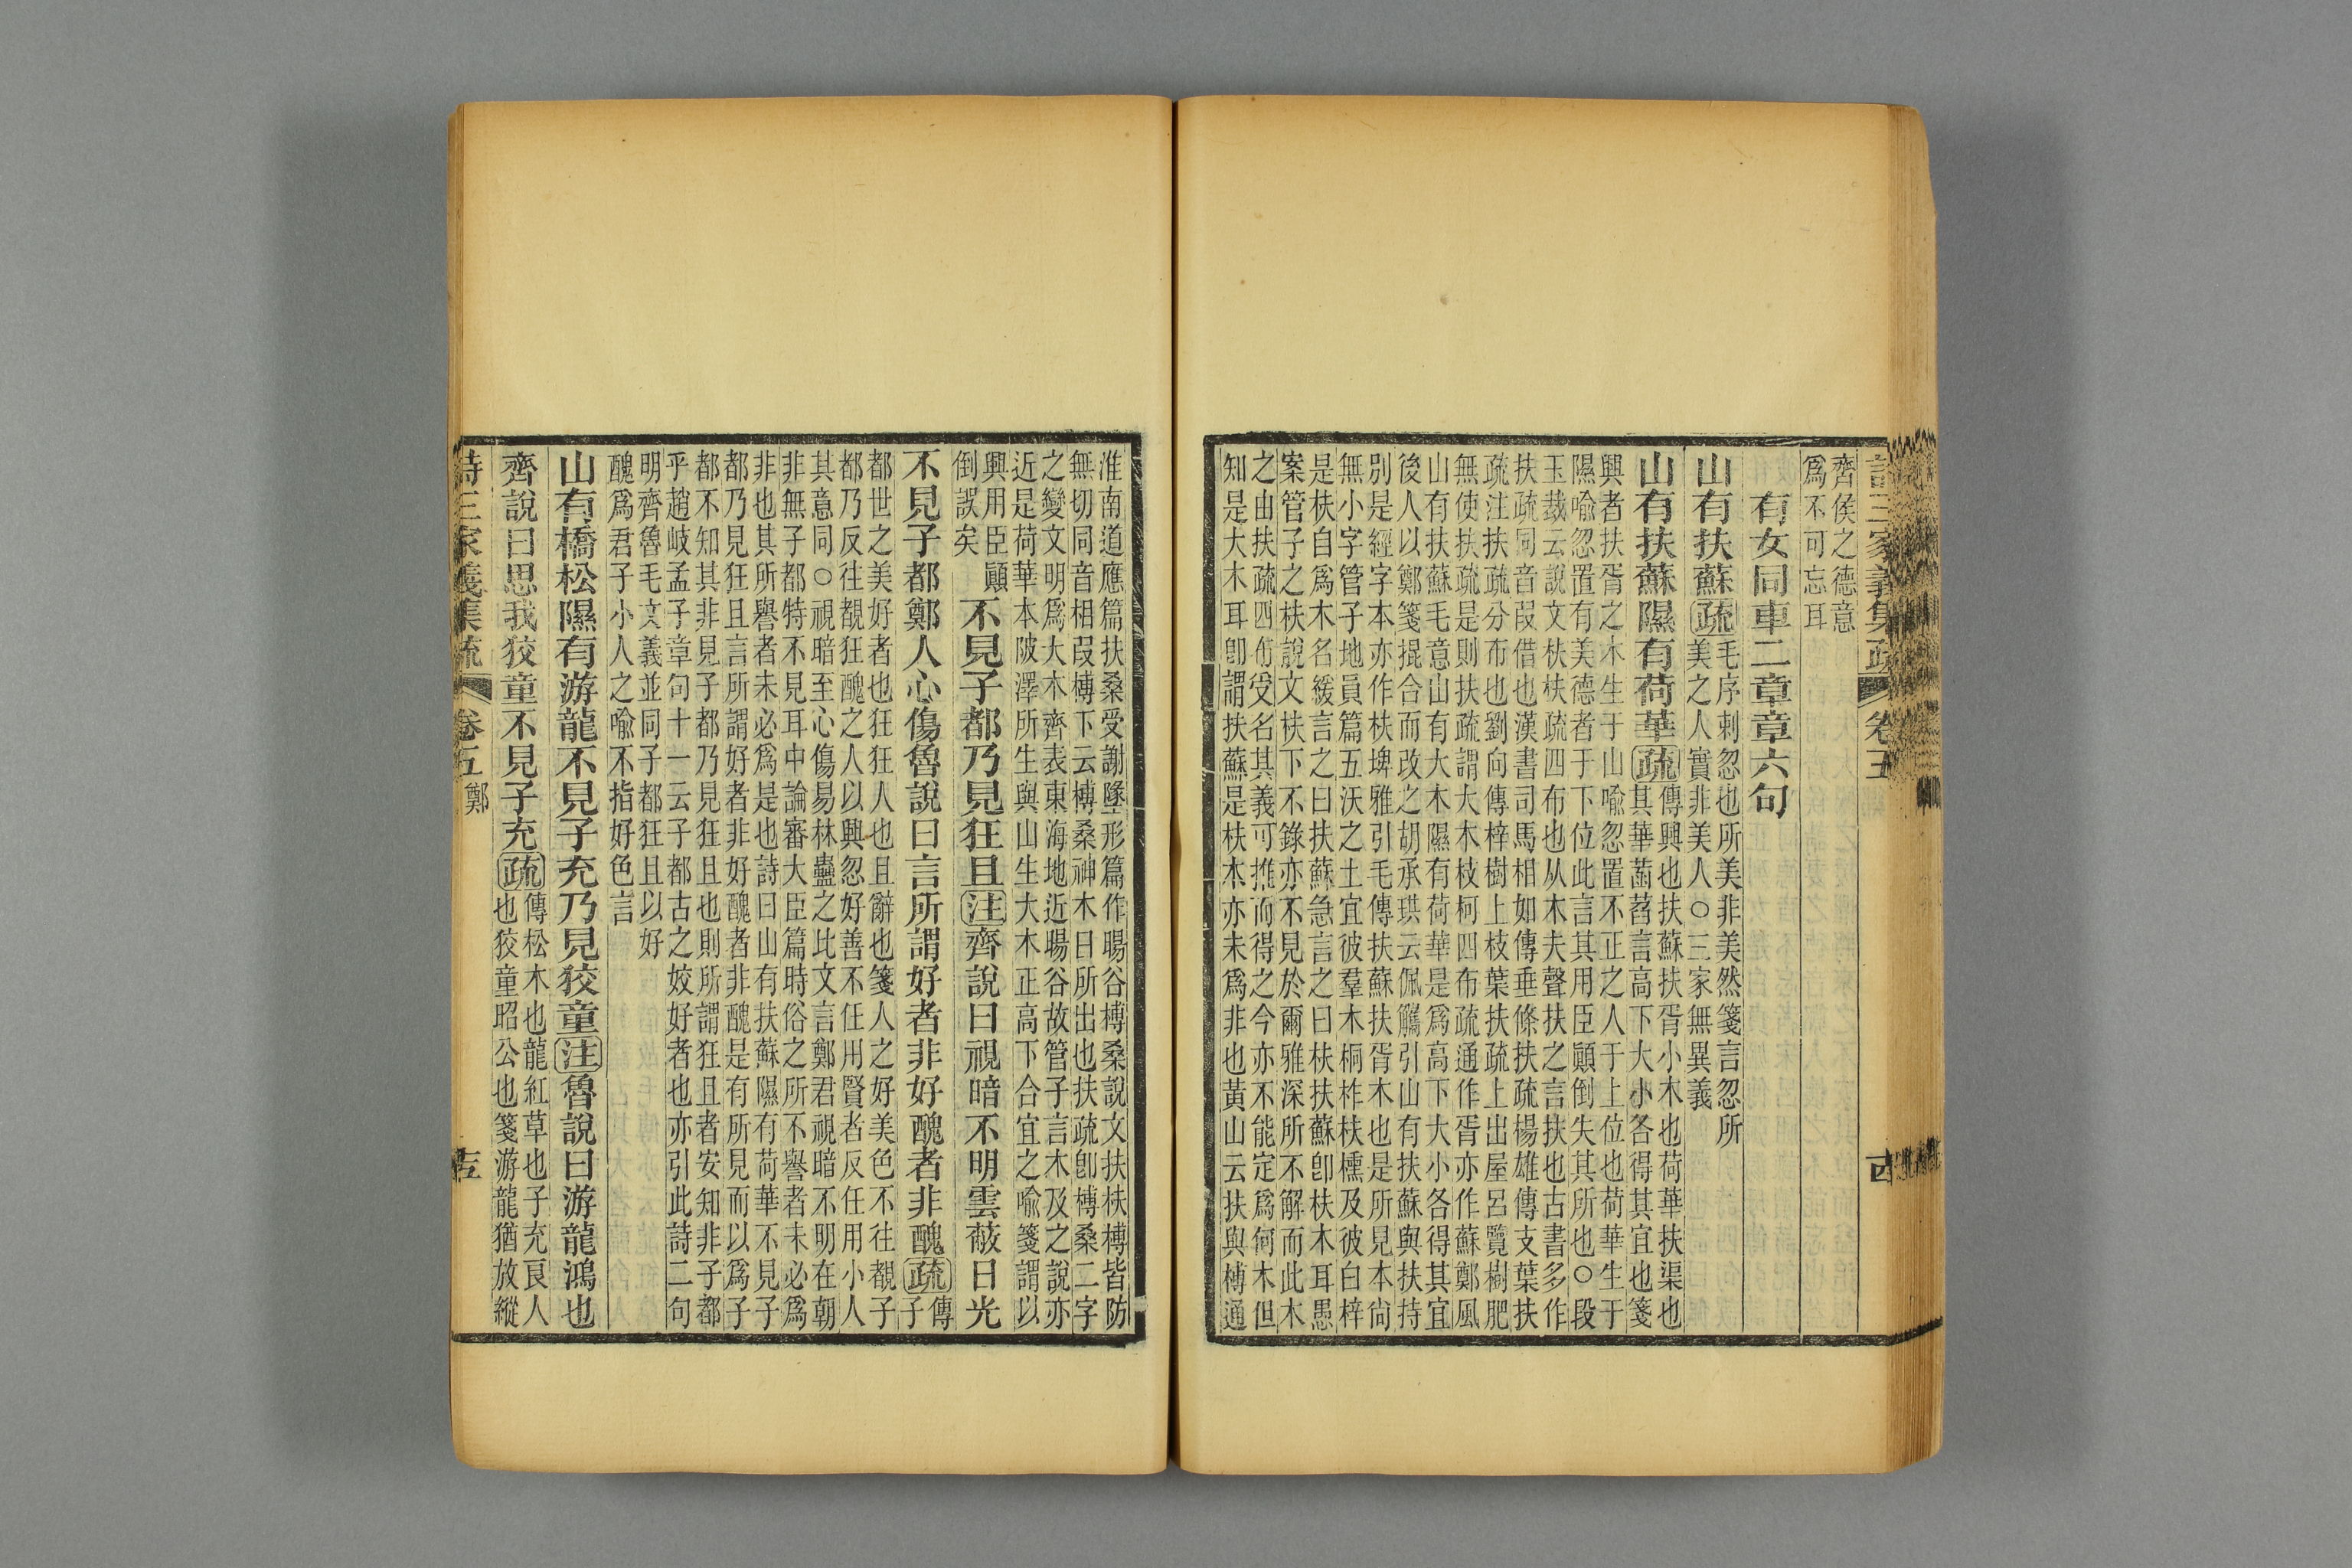 詩三家義集疏 卷五
齊侯之德意
爲不可忘耳
有女同車二章章六句
山有扶蘇疏
毛序刺忽也所美非美然箋言忽所
美之人實非美人○三家無異義
山有扶蘇隰有荷華疏
傳興也扶蘇扶胥小木也荷華扶渠也
其華菡萏言高下大小各得其宜也箋
興者扶胥之木生于山喻忽置不正之人于上位也荷華生于
隰喻忽置有美德者于下位此言其用臣顛倒失其所也○段
玉裁云說文枎枎疏四布也从木夫聲扶之言扶也古書多作
扶疏同音叚借也漢書司馬相如傳垂條扶疏楊雄傳支葉扶
疏注扶疏分布也劉向傳梓樹上枝葉扶疏上出屋呂覽樹肥
無使扶疏是則扶疏謂大木枝柯四布疏通作胥亦作蘇鄭風
山有扶蘇毛意山有大木隰有荷華是爲高下大小各得其宜
後人以鄭箋掍合而改之胡承珙云佩觿引山有扶蘇與扶持
別是經字本亦作枎埤雅引毛傳扶蘇扶胥木也是所見本尙
無小字管子地員篇五沃之土宜彼羣木桐柞枎櫄及彼白梓
是枎自爲木名緩言之曰扶蘇急言之曰枎扶蘇卽枎木耳愚
案管子之枎說文枎下不錄亦不見於爾雅深所不解而此木
之由扶疏四布受名其義可推而得之今亦不能定爲何木但
知是大木耳卽謂扶蘇是枎木亦未爲非也黃山云扶與榑通
淮南道應篇扶桑受謝墬形篇作暘谷榑桑說文扶枎榑皆防
無切同音相叚榑下云榑桑神木日所出也扶疏卽榑桑二字
之變文明爲大木齊表東海地近暘谷故管子言木及之說亦
近是荷華本陂澤所生與山生大木正高下合宜之喻箋謂以
興用臣顚
倒誤矣
不見子都乃見狂且注齊說曰視暗不明雲蔽日光
不見子都鄭人心傷魯說曰言所謂好者非好醜者非醜疏
傳
子
都世之美好者也狂狂人也且辭也箋人之好美色不往覩子
都乃反往覩狂醜之人以興忽好善不任用賢者反任用小人
其意同○視暗至心傷易林蠱之比文言鄭君視暗不明在朝
非無子都特不見耳中論審大臣篇時俗之所不譽者未必爲
非也其所譽者未必爲是也詩曰山有扶蘇隰有荷華不見子
都乃見狂且言所謂好者非好醜者非醜是有所見而以爲子
都不知其非見子都乃見狂且也則所謂狂且者安知非子都
乎趙岐孟子章句十一云子都古之姣好者也亦引此詩二句
明齊魯毛文義並同子都狂且以好
醜爲君子小人之喻不指好色言
山有橋松隰有游龍不見子充乃見狡童注魯說曰游龍鴻也
齊說曰思我狡童不見子充疏
傳松木也龍紅草也子充良人
也狡童昭公也箋游龍猶放縱
詩三家義集疏 卷五 鄭